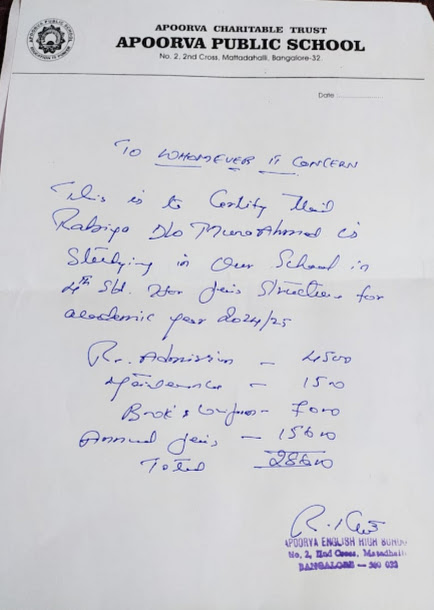 APOORVA CHARITABLE TRUST
APOORVA PUBLIC SCHOOL
No. 2, 2nd Cross, Mattadahalli, Bangalore-32.
Date :
TO WHOMEVER IT CONCERN
This is to Certify that
Rabiya D/o Ahmed is
Studying in Our School in
4th Std. Her fees Structure for
academic year 2024/25
Re. Admission - 4500
Maintenance - 1500
Book & Uniform - 7000
Annual fees, - 15600
Total 28600
APOORVA ENGLISH HIGH SCHOOL
No. 2, IInd Cross,
BANGALORE - 560 032